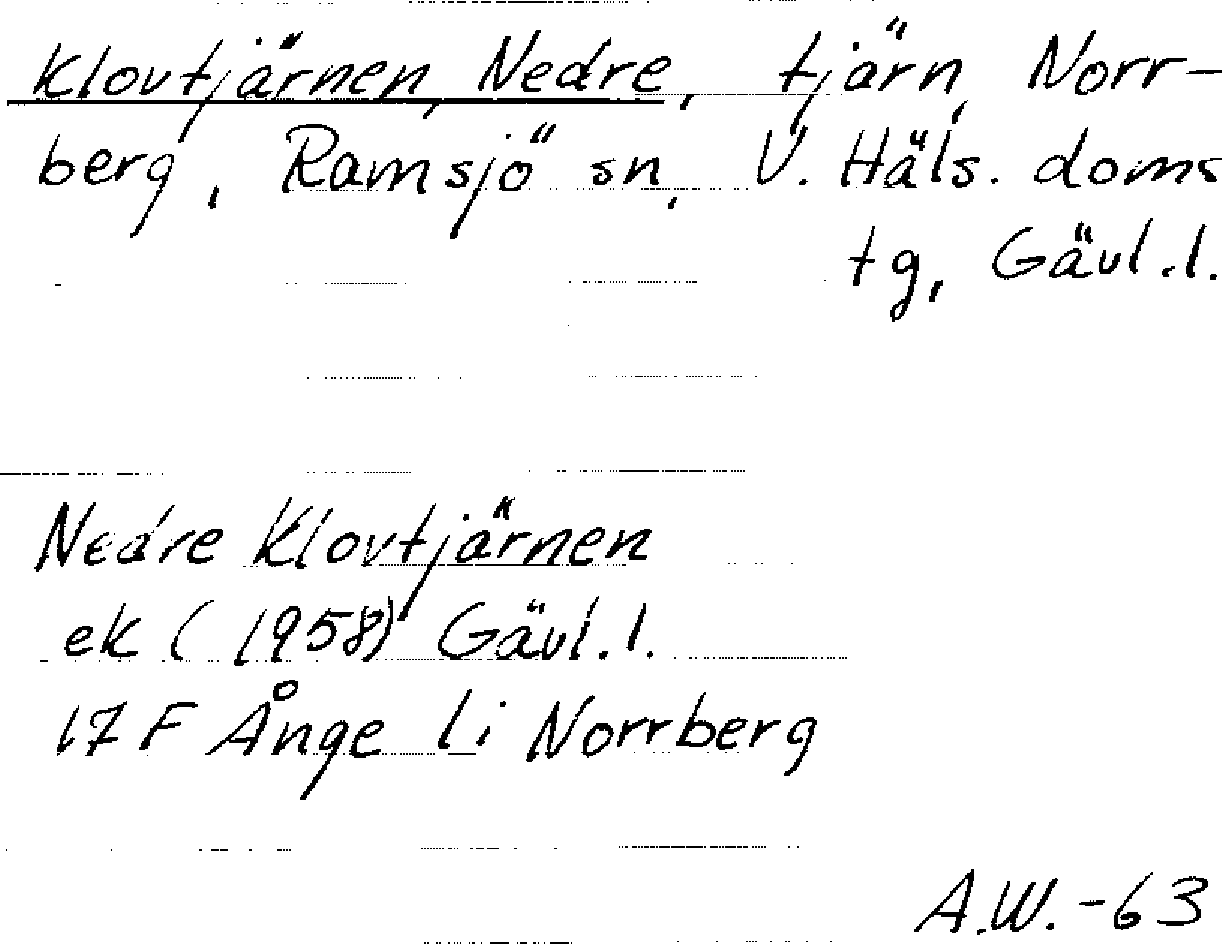 Klovtjärnen, Nedre, tjärn, Norr-
berg, Ramsjö sn, V. Häls. doms
tg, Gävl.l.
Nedre Klovtjärnen
ek (1958) Gävl.l.
17 F Ånge li Norrberg
A.W.-63